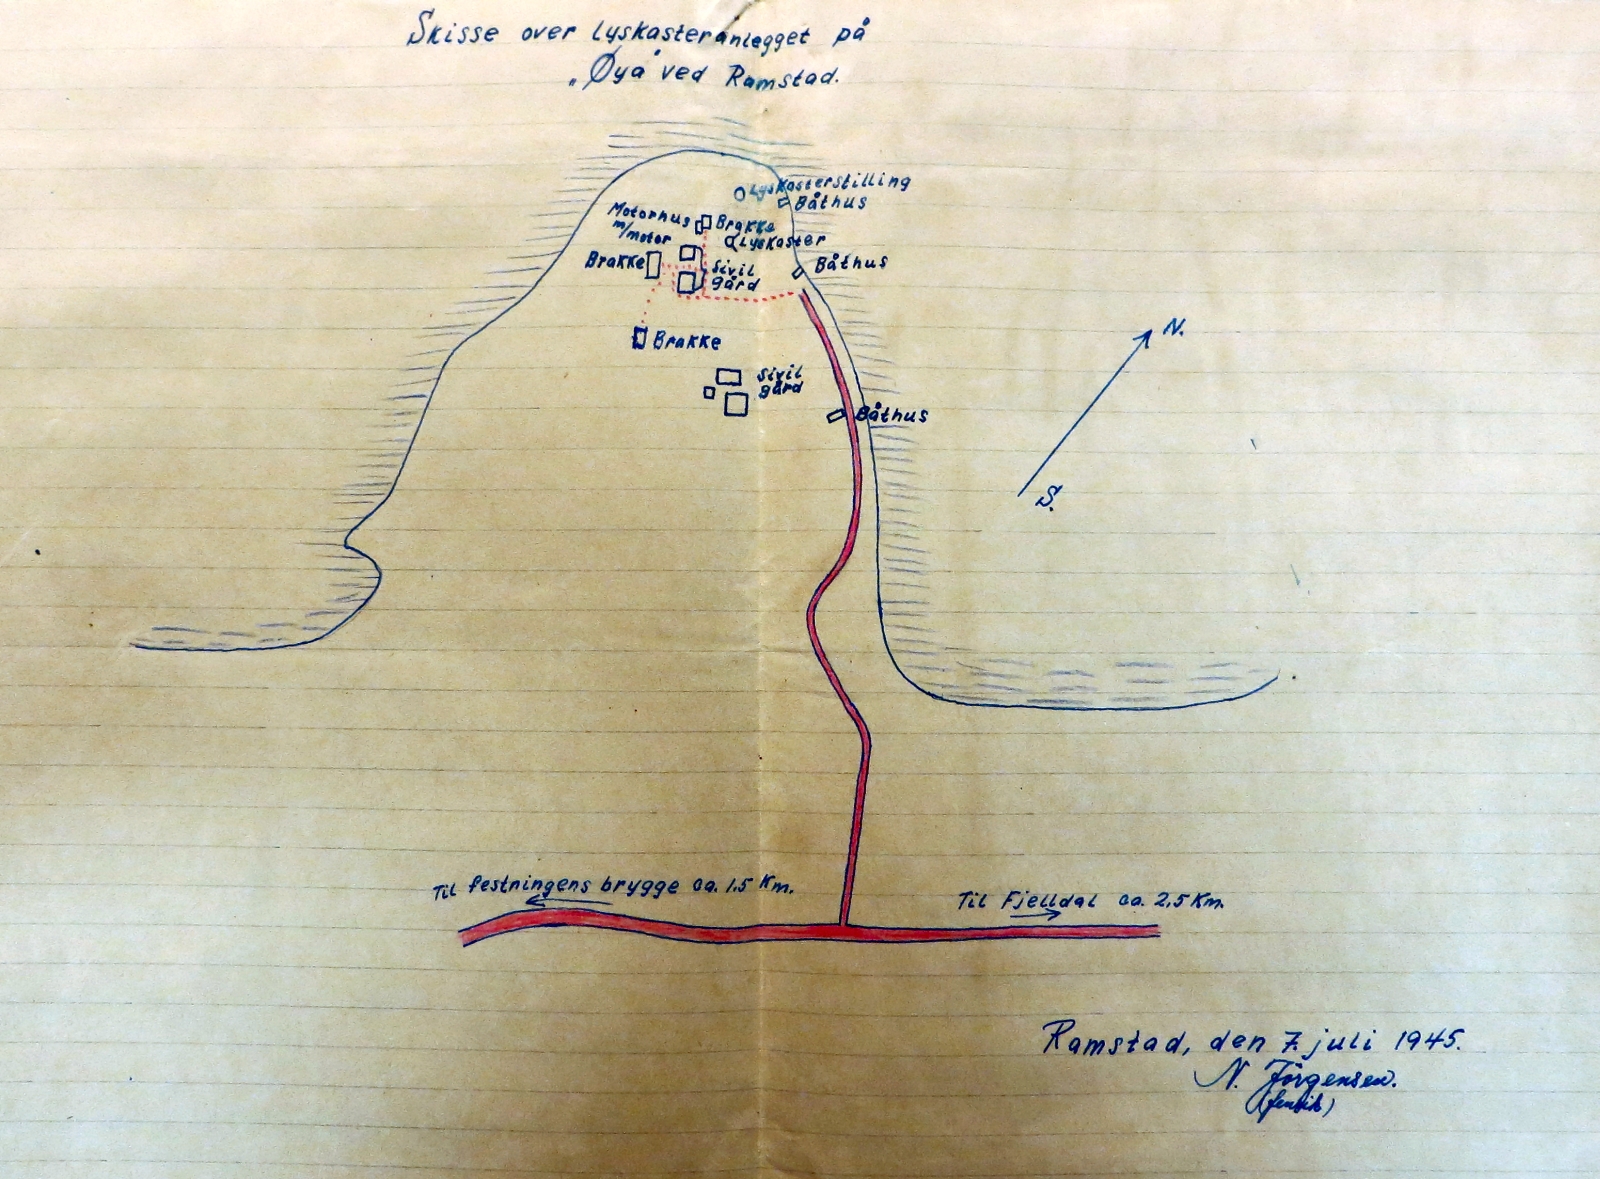 Skisse over lyskasteranlegget på
„Øya" ved Ramstad.
Lyskasterstilling
Båthus
Motorhus
m/motor
Brakke
Lyskaster
Brakke
Sivil
gård
Båthus
Brakke
Sivil
gård
Båthus
N.
S.
Til festningens brygge ca. 1.5 Km.
Til Fjelldal ca. 2,5 Km.
Ramstad, den 7. juli 1945.
N. Jörgensen.
(fenrik)